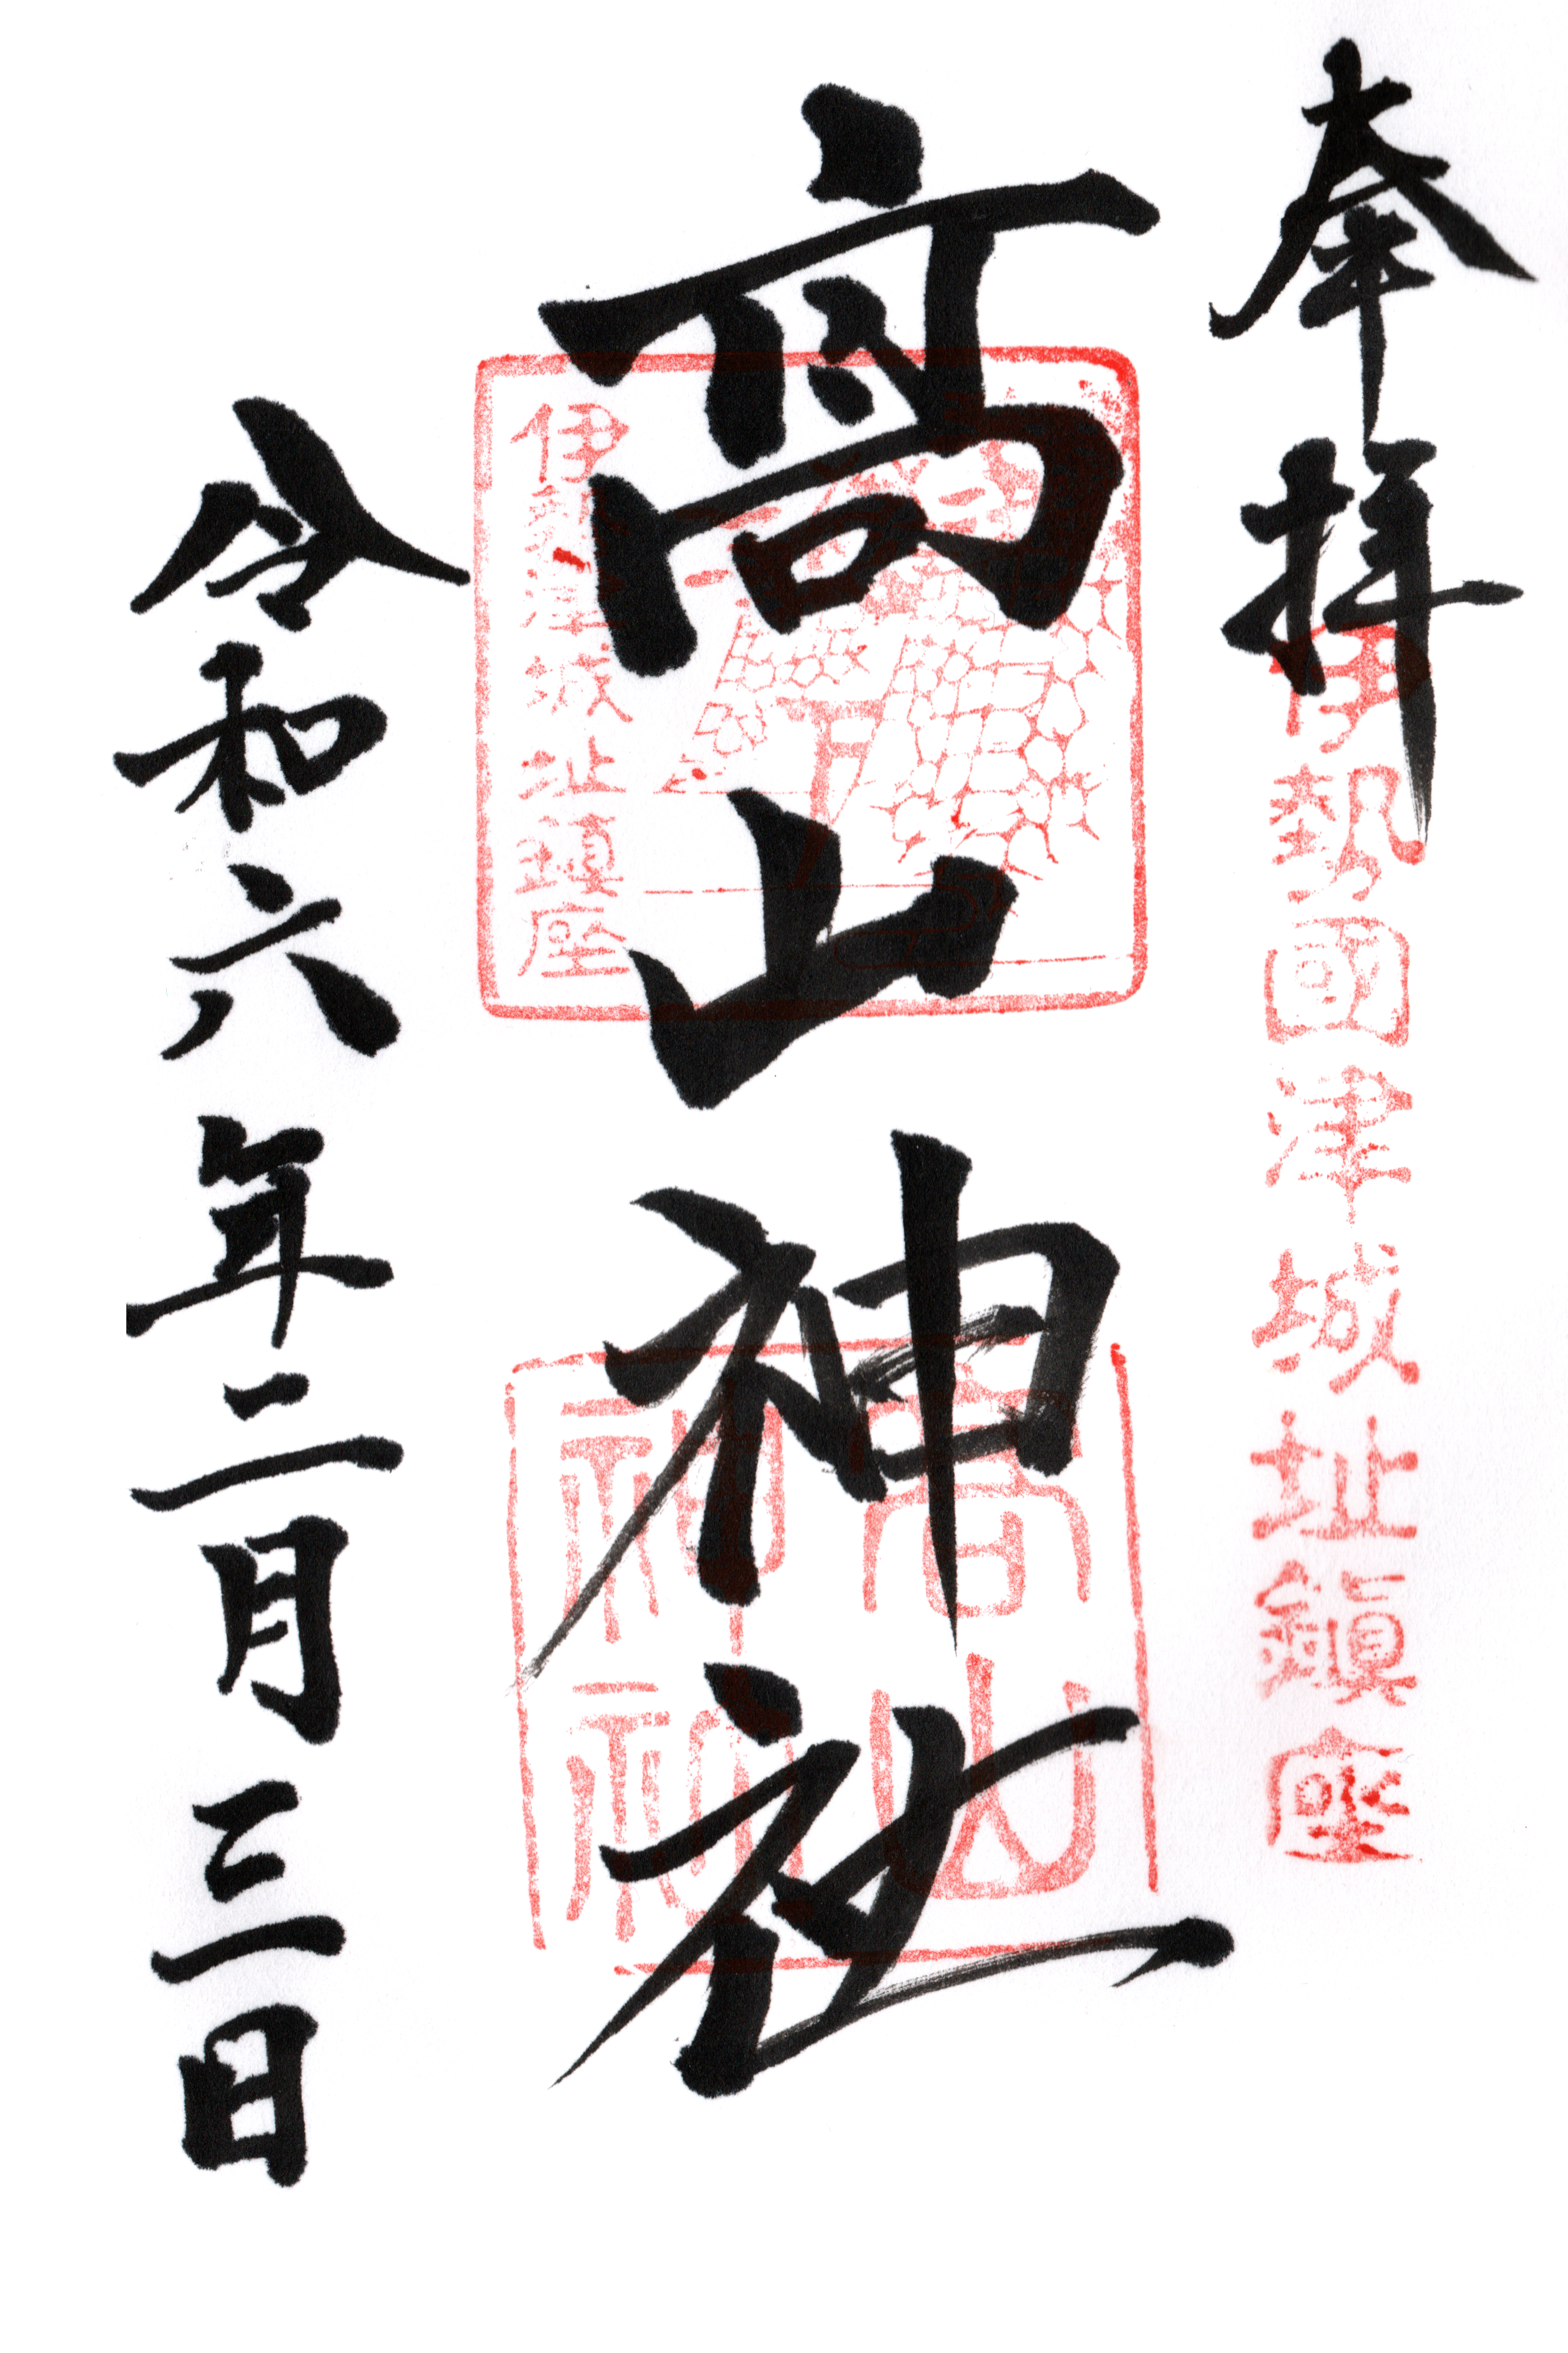 奉拝
伊勢國津城址鎮座
高山神社
伊勢津城址鎮座
高山神社
令和六年二月三日